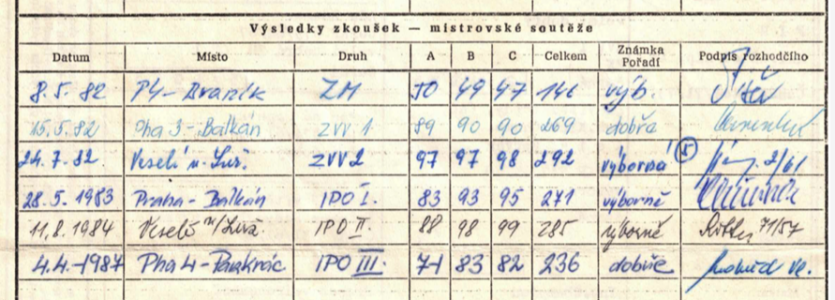 Výsledky zkoušek — mistrovské soutěže
Datum Místo Druh A B C Celkem Známka Pořadí Podpis rozhodčího
8.5.82 P4-Braník ZM 50 49 47 146 výb.
15.5.82 Pha 3-Balkán ZVV 1 89 90 90 269 dobře
24.7.82 Veselí n. Luž. ZVV2 97 97 98 292 výborná 5
28.5.1983 Praha-Balkán IPO I. 83 93 95 271 výborně
11.8.1984 Veselí n/Luž. IPO II. 88 98 99 285 výborně 71/57
4.4.-1987 Pha 4-Pankrác IPO III. 71 83 82 236 dobře